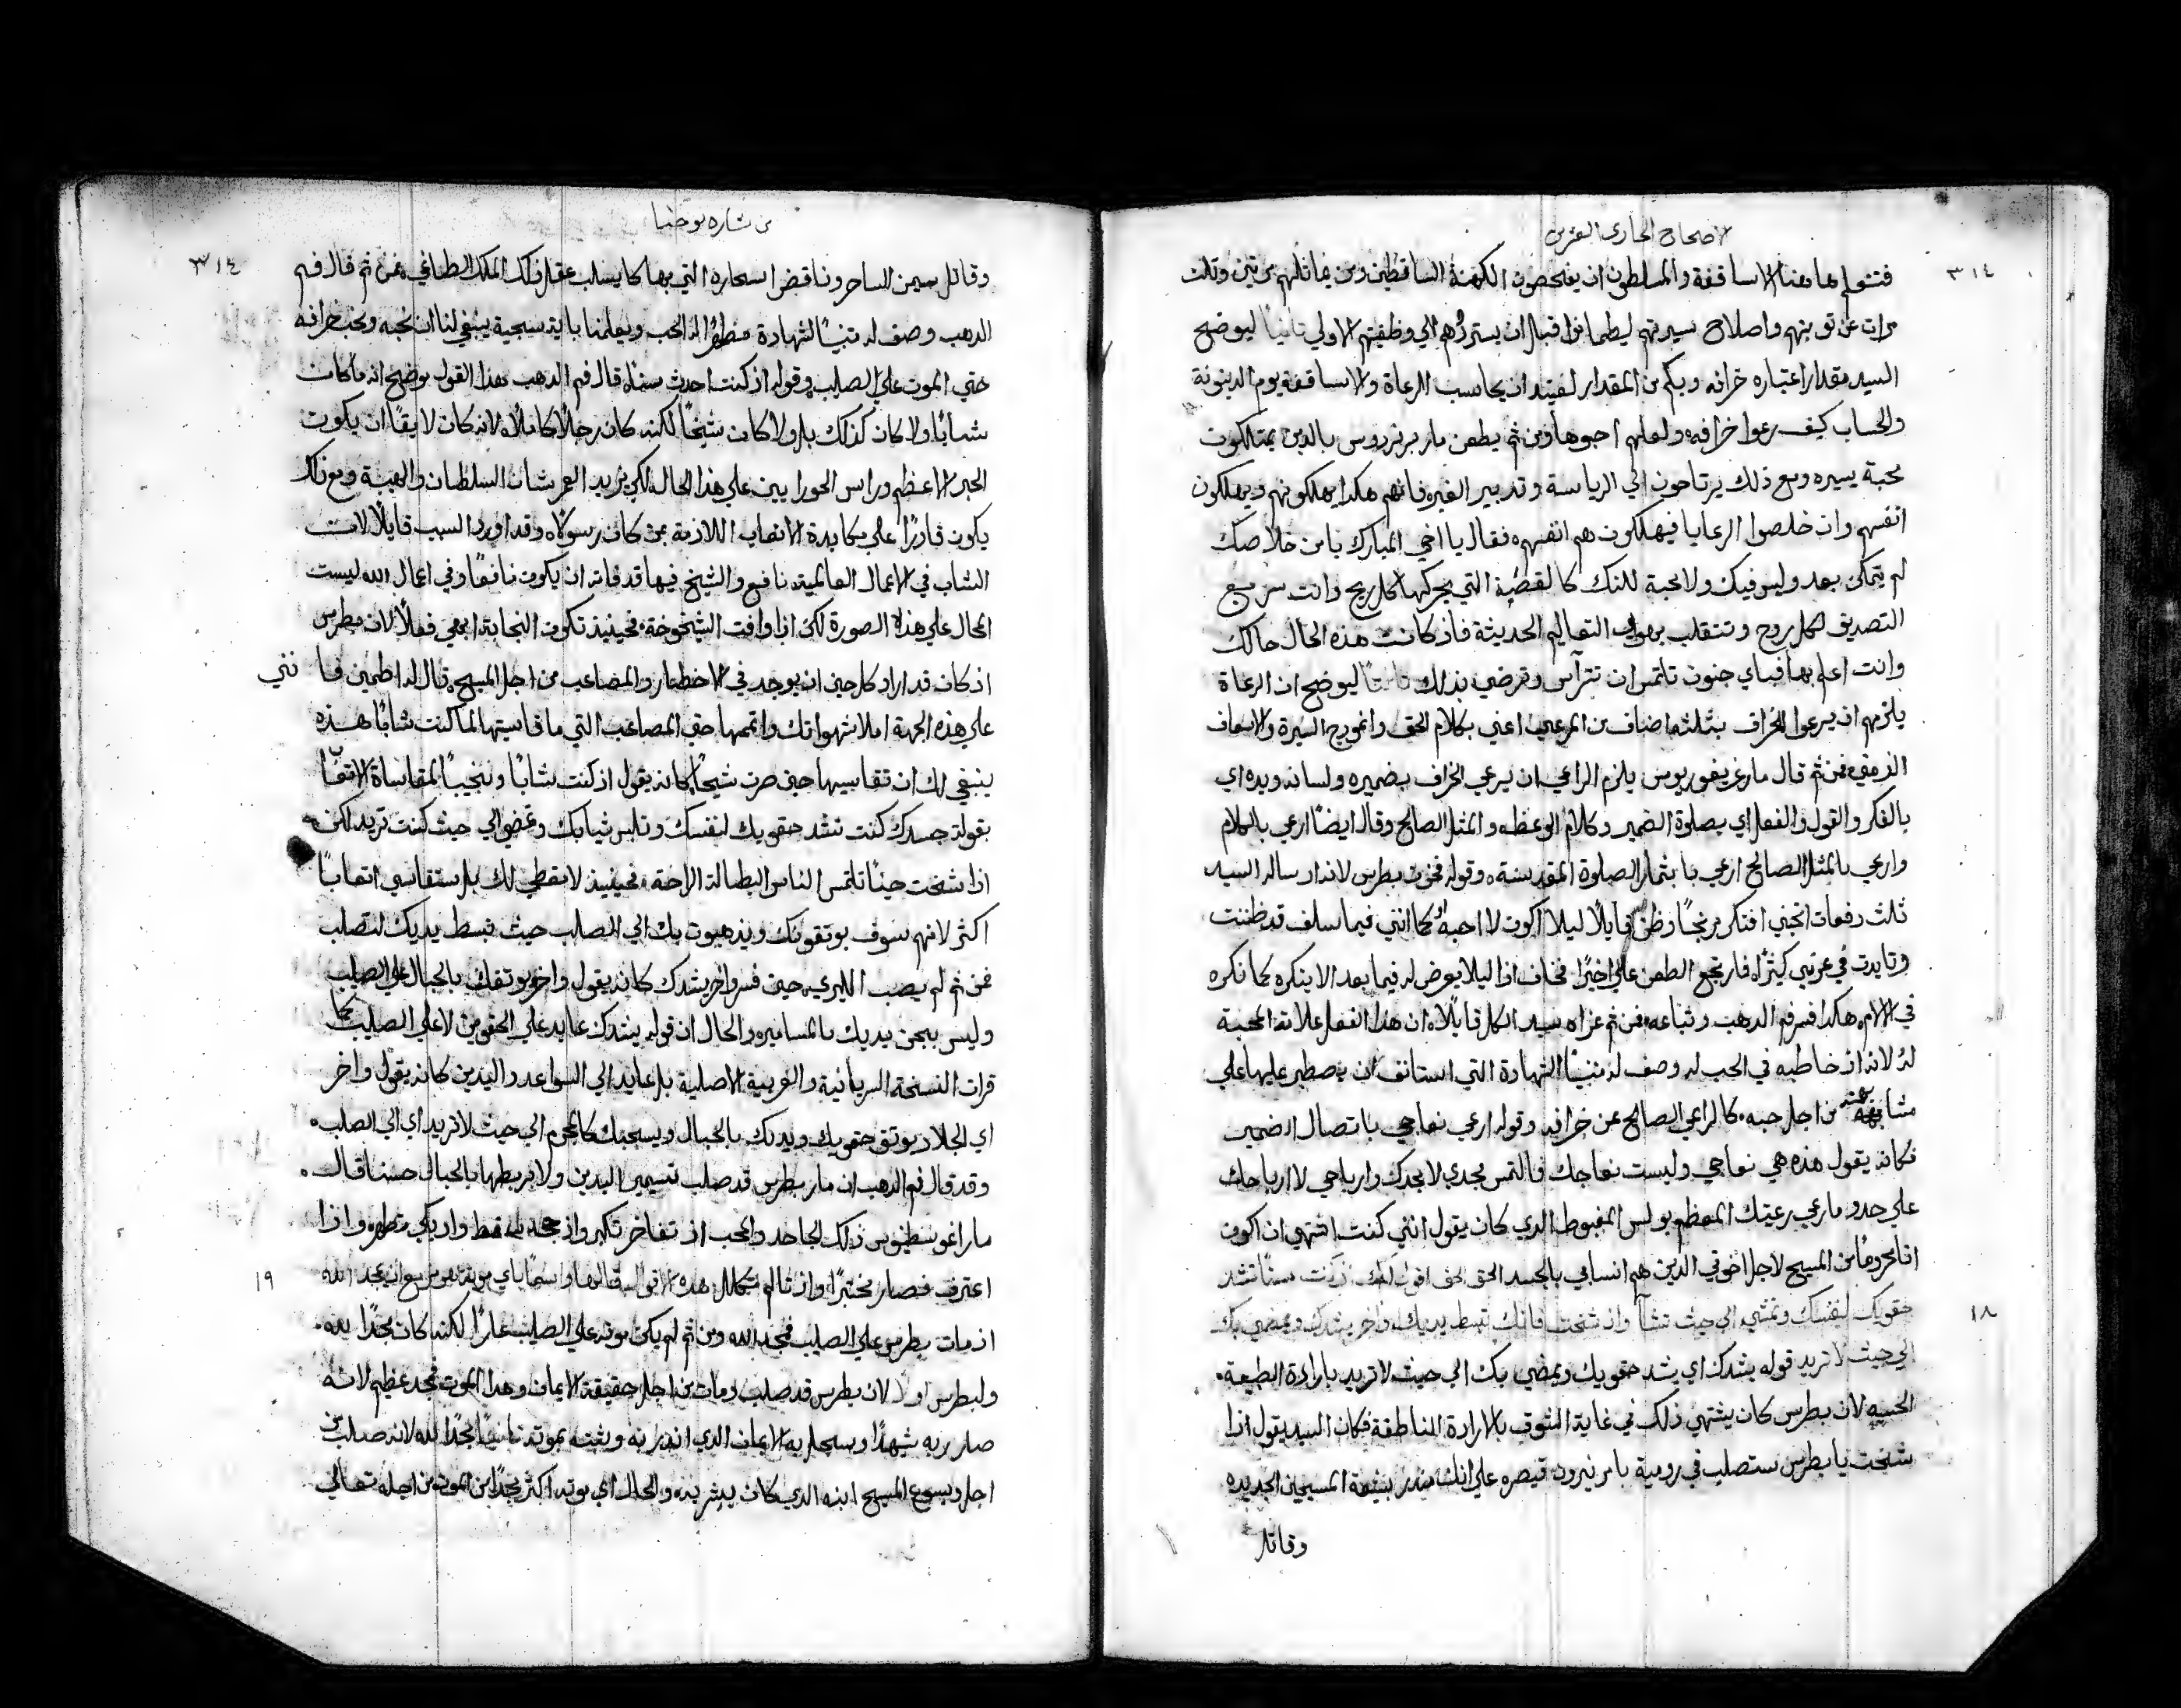 الاصحاح الحادي العشرين
٣١٤
فتتعلم هاهنا الاساقفة والمسلطون ان يفحصون الكهنة الساقطين ومن يماثلهم مرتين وثلث
مرات عن توبتهم واصلاح سيرتهم ليطمانوا قبل ان يستردوهم الي وظيفتهم الاولي ثانيا ليوضح
السيد مقدار اعتباره خرافه وبكم من المقدار لفيتد ان يحاسب الرعاة والاساقفة يوم الدينونة
والحساب كيف رعوا خرافه ولعلهم احبوها ومن ثم يطعن مار برنردوس بالذين يمتلكون
محبة يسيره ومع ذلك يرتاحون الي الرياسة وتدبير الغير فانهم هكذا يهلكونهم ويهلكون
انفسهم وان خلصوا الرعايا فيهلكون هم انفسهم فقال يا اخي المبارك يا من خلاصك
لم يتمكن بعد وليس فيك ولا محبة لكنك كالقصبة التي يحركها كل ريح وانت سريع
التصديق لكل روح وتتقلب بهواء التعاليم الحديثة فاذ كانت هذه الحال حالك
وانت اعلم بها فباي جنون تلتمس ان تترآس وترضي بذلك ثالثا ليوضح ان الرعاة
يلزمهم ان يرعوا الخراف بثلثة اضناف من المرعي اعني بكلام الحق وانموذج السيرة والاسعاف
الزمني فمن ثم قال مار غريغوريوس يلزم الراعي ان يرعي الخراف بضميره ولسانه ويده اي
بالفكر والقول والفعل اي بصلوة الضمير وكلام الوعظ والمثل الصالح وقال ايضا ارعي بالكلام
وارعي بالمثل الصالح ارعي باثمار الصلوة المقدسة وقوله فحزن بطرس لانه ارساله السيد
ثلث دفعات اتحبني افتكر مرتجا وظن قايلا ليلا اكون لا احبه كما انني فيما سلف قد ظننت
وتايدت في عزمي كثيرا فارتجع الطعن علي اخيرا فخاف اذا ليلا يعرض له فيما بعد الا ينكره كما نكره
في الالام هكذا فسر فم الذهب وتباعه فمن ثم عزاه سيد الكل قايلا ان هذا الفعل علامة المحبة
له لانه اذ خاطبه في الحب له وصف له متنبيا الشهادة التي استانف ان يصطبر عليها علي
مشابهته من اجل حبه كالراعي الصالح عن خرافه وقوله ارعي نعاجي باتصال الضمير
فكانه يقول هذه هي نعاجي وليست نعاجك فالتمس مجدي لا مجدك وارباحي لا ارباحك
علي حدو مارعي رعيتك المعظم بولس المغبوط الذي كان يقول انني كنت اشتهي ان اكون
انا محروما من المسيح لاجل اخوتي الذين هم انسابي بالجسد الحق الحق اقول لك اذ كنت شابا تشد
١٨
حقويك لنفسك وتمشي الي حيث تشآ واذ شخت فانك تبسط يديك واخر يشدك ويمضي بك
الي حيث لا تريد قوله يشدك اي يشد حقويك ويمضي بك الي حيث لا تريد بارادة الطبيعة
الحسيه لان بطرس كان يشتهي ذلك في غاية الشوق بالارادة الناطقة فكان السيد يقول اذا
شخت يا بطرس ستصلب في رومية بامر نيرون قيصره علي انك منذر بشيعة المسيحيين الجديده
وقاتل
من بشارة يوحنا
٣١٤
وقاتل سيمن الساحر وناقض اسحاره التي بها كان يسلب عقل ذلك الملك الطاغي فمن ثم قال فم
الذهب وصف له متنبيا الشهادة مظهرا له الحب ويعلمنا باية سجية ينبغي لنا ان نحبه ونحب خرافه
حتي الموت علي الصليب وقوله اذ كنت احدث سنا قال فم الذهب بهذا القول يوضح انه ما كان
شابا ولا كان كذلك بل ولا كان شيخا لكنه كان رجلا كاملا لانه كان لايقا ان يكون
الحبر الاعظم وراس الحوراريين علي هذا الحال لكي يزيد العمر شان السلطان والهيبة ومع ذلك
يكون قادرا علي مكابدة الاتعاب اللازمة بمن كان رسولا وقد اورد السبب قايلا لان
الشاب في الاعمال العالمية نافع والشيخ فيها قد فاته ان يكون نافعا وفي اعمال الله ليست
الحال علي هذه الصورة لكن اذا وافت الشيخوخة فحينيذ تكون النجابة ابهي فعلا لان بطرس
اذ كان قد اراد كل حين ان يوجد في الاخطار والمصاعب من اجل المسيح قال له اطمين فانني
علي هذه الجهة املا شهواتك واتممها حتي المصاعب التي ما قاسيتها لما كنت شابا هذه
ينبغي لك ان تقاسيها حين صرت شيخا كانه يقول اذ كنت شابا ونجيبا لمقاساة الاتعاب
بقوة جسدك كنت تشد حقويك لنفسك وتلبس ثيابك وتمضي الي حيث كنت تريد لكن
اذا شخت حينا تلتمس الناس البطالة الراحة فحينيذ لا يعطي لك بل ستقاسي اتعابا
اكثر لانهم سوف يوثقونك ويذهبون بك الي الصلب حيث تبسط يديك لتصلب
فمن ثم لم يصب الليري حين فسر واخر يشدك كانه يقول واخر يوثقك بالحبال علي الصليب
وليس يسجن يديك بالمسامير والحال ان قوله يشدك عايد علي الحقوين لا علي الصليب كما
قرات النسخة السريانية والعربية الاصلية بل عايد الي السواعد واليدين كانه يقول واخر
اي الجلاد يوثق حقويك ويديك بالحبال ويسحبك كالمجرم الي حيث لا تريد اي الي الصلب
وقد قال فم الذهب ان مار بطرس قد صلب بتسمير اليدين ولا بربطها بالحبال حسنا قال
مار اغوسطينوس ذلك الجاحد والمحب اذ تفاخر تكبر واذ جحد سقط واذ بكي تطهر واذا
١٩
اعترف فصار مختبرا واذ تالم تكلل هذه الاقوال قالها واسما باي موتة هو مزمع ان يمجد الله
اذ مات بطرس علي الصليب فمجد الله ومن ثم لم يكن موته علي الصليب عارا لكنه كان مجدا لله
ولبطرس اولا لان بطرس قد صلب ومات من اجل حقيقة الايمان وهذا الموت مجد عظيم لانه
صار به شهيدا وسجل به الايمان الذي انذر به وثبته بموته ثانيا مجدا لله لانه صلب من
اجل يسوع المسيح ابنه الذي كان يبشر به والحال اي موته اكثر مجدا من الموت من اجله تعالي